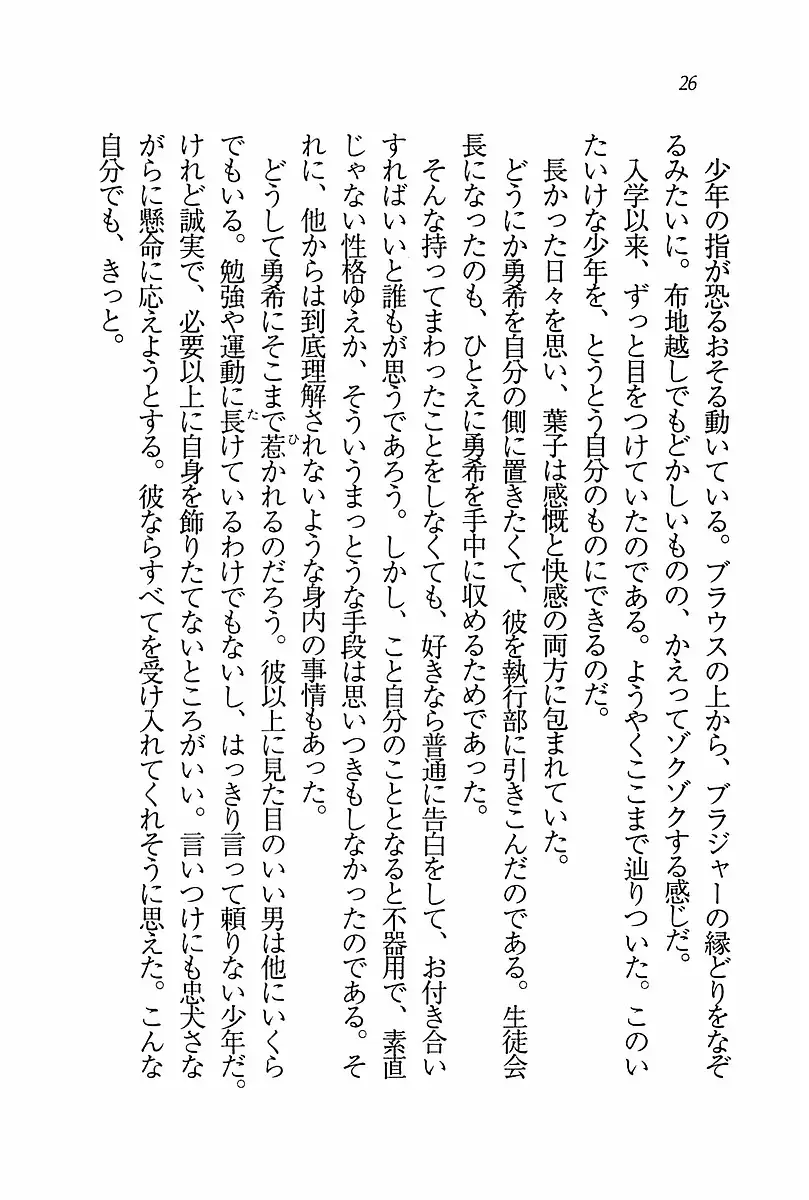 26
少年の指が恐るおそる動いている。ブラウスの上から、ブラジャーの縁どりをなぞ
るみたいに。布地越しでもどかしいものの、かえってゾクゾクする感じだ。
入学以来、ずっと目をつけていたのである。ようやくここまで辿りついた。このい
たいけな少年を、とうとう自分のものにできるのだ。
長かった日々を思い、葉子は感慨と快感の両方に包まれていた。
どうにか勇希を自分の側に置きたくて、彼を執行部に引きこんだのである。生徒会
長になったのも、ひとえに勇希を手中に収めるためであった。
そんな持ってまわったことをしなくても、好きなら普通に告白をして、お付き合い
すればいいと誰もが思うであろう。しかし、こと自分のこととなると不器用で、素直
じゃない性格ゆえか、そういうまっとうな手段は思いつきもしなかったのである。そ
れに、他からは到底理解されないような身内の事情もあった。
どうして勇希にそこまで惹かれるのだろう。彼以上に見た目のいい男は他にいくら
でもいる。勉強や運動に長けているわけでもないし、はっきり言って頼りない少年だ。
けれど誠実で、必要以上に自身を飾りたてないところがいい。言いつけにも忠犬さな
がらに懸命に応えようとする。彼ならすべてを受け入れてくれそうに思えた。こんな
自分でも、きっと。